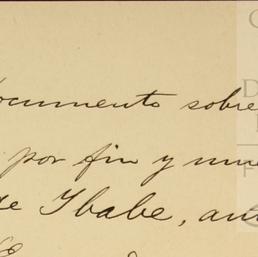 documento sobre
por fin y mue
de Ybabe, aun